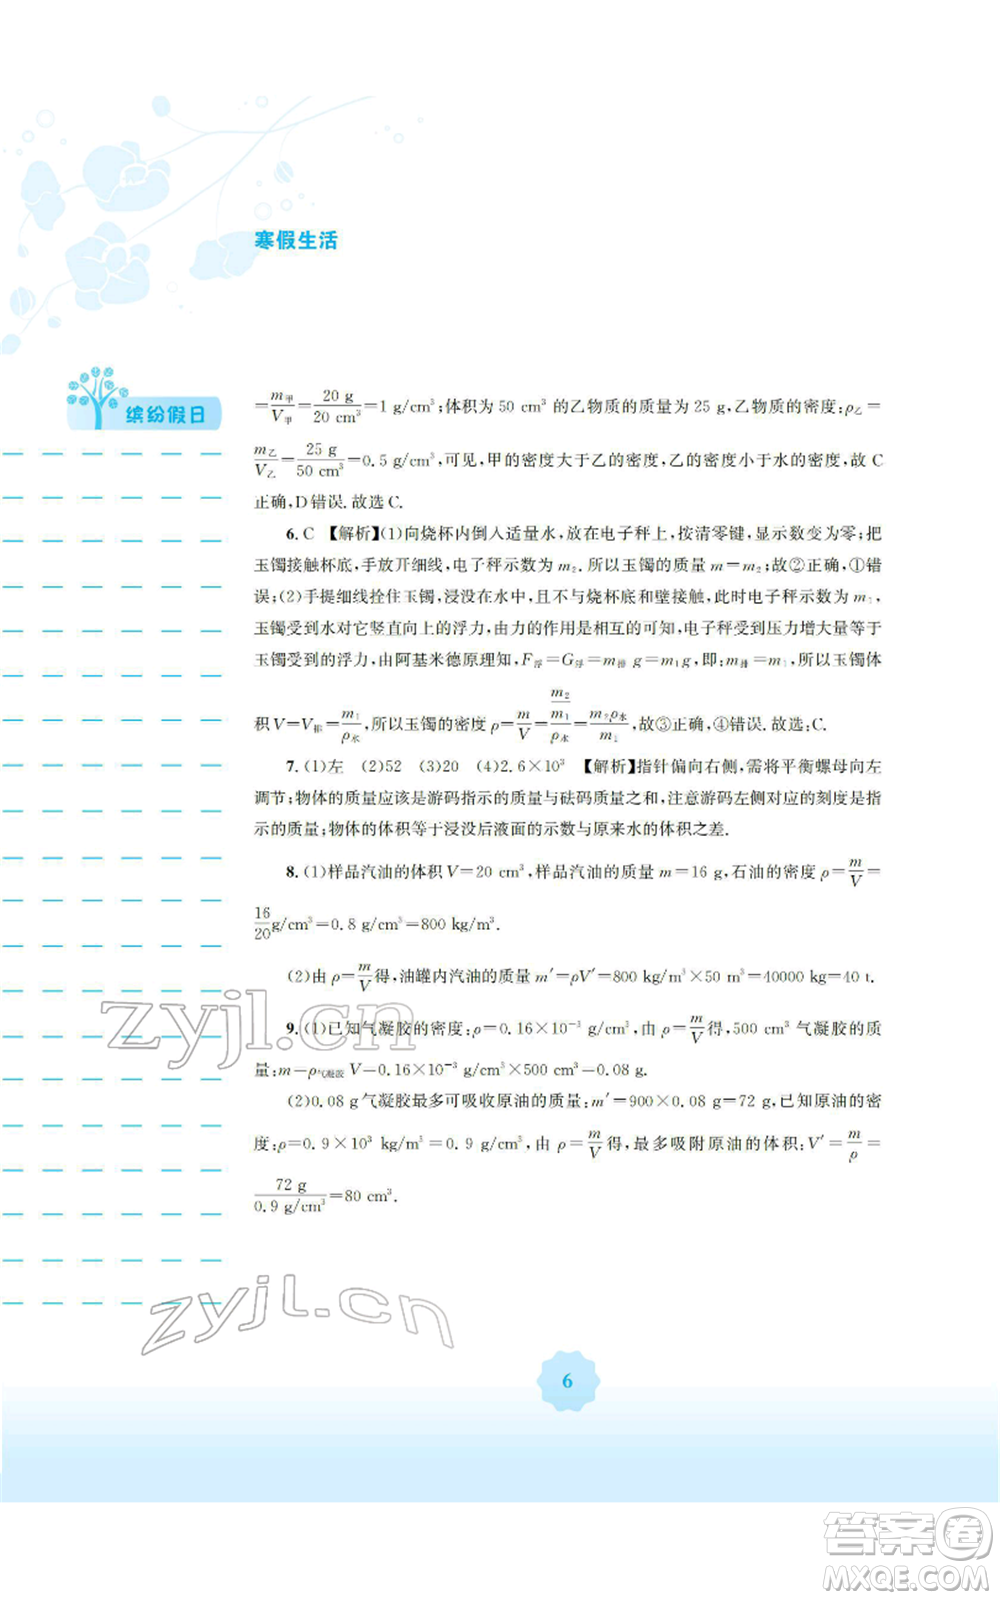 寒假生活
缤纷假日
=m甲/V甲=20 g/20 cm³=1 g/cm³;体积为 50 cm³ 的乙物质的质量为 25 g,乙物质的密度:ρ乙=
m乙/V乙=25 g/50 cm³=0.5 g/cm³,可见,甲的密度大于乙的密度,乙的密度小于水的密度,故 C
正确,D 错误.故选 C.
6. C 【解析】(1)向烧杯内倒入适量水,放在电子秤上,按清零键,显示数变为零;把
玉镯接触杯底,手放开细线,电子秤示数为 m₂.所以玉镯的质量 m=m₂;故②正确,①错
误;(2)手提细线拴住玉镯,浸没在水中,且不与烧杯底和壁接触,此时电子秤示数为 m₁,
玉镯受到水对它竖直向上的浮力,由力的作用是相互的可知,电子秤受到压力增大量等于
玉镯受到的浮力,由阿基米德原理知,F浮=G浮=m排 g=m₁g,即:m排=m₁,所以玉镯体
积 V=V排=m₁/ρ水,所以玉镯的密度 ρ=m/V=m₂/(m₁/ρ水)=m₂ρ水/m₁,故③正确,④错误.故选:C.
7. (1)左 (2)52 (3)20 (4)2.6×10³ 【解析】指针偏向右侧,需将平衡螺母向左
调节;物体的质量应该是游码指示的质量与砝码质量之和,注意游码左侧对应的刻度是指
示的质量;物体的体积等于浸没后液面的示数与原来水的体积之差.
8. (1)样品汽油的体积 V=20 cm³,样品汽油的质量 m=16 g,石油的密度 ρ=m/V=
16/20 g/cm³=0.8 g/cm³=800 kg/m³.
(2)由 ρ=m/V 得,油罐内汽油的质量 m′=ρV′=800 kg/m³×50 m³=40000 kg=40 t.
9. (1)已知气凝胶的密度:ρ=0.16×10⁻³ g/cm³,由 ρ=m/V 得,500 cm³ 气凝胶的质
量:m=ρ气凝胶 V=0.16×10⁻³ g/cm³×500 cm³=0.08 g.
(2)0.08 g 气凝胶最多可吸收原油的质量:m′=900×0.08 g=72 g,已知原油的密
度:ρ=0.9×10³ kg/m³=0.9 g/cm³,由 ρ=m/V 得,最多吸附原油的体积:V′=m/ρ=
72 g/0.9 g/cm³=80 cm³.
zyjl.cn
zyjl.cn
6
答案卷
MXQE.COM